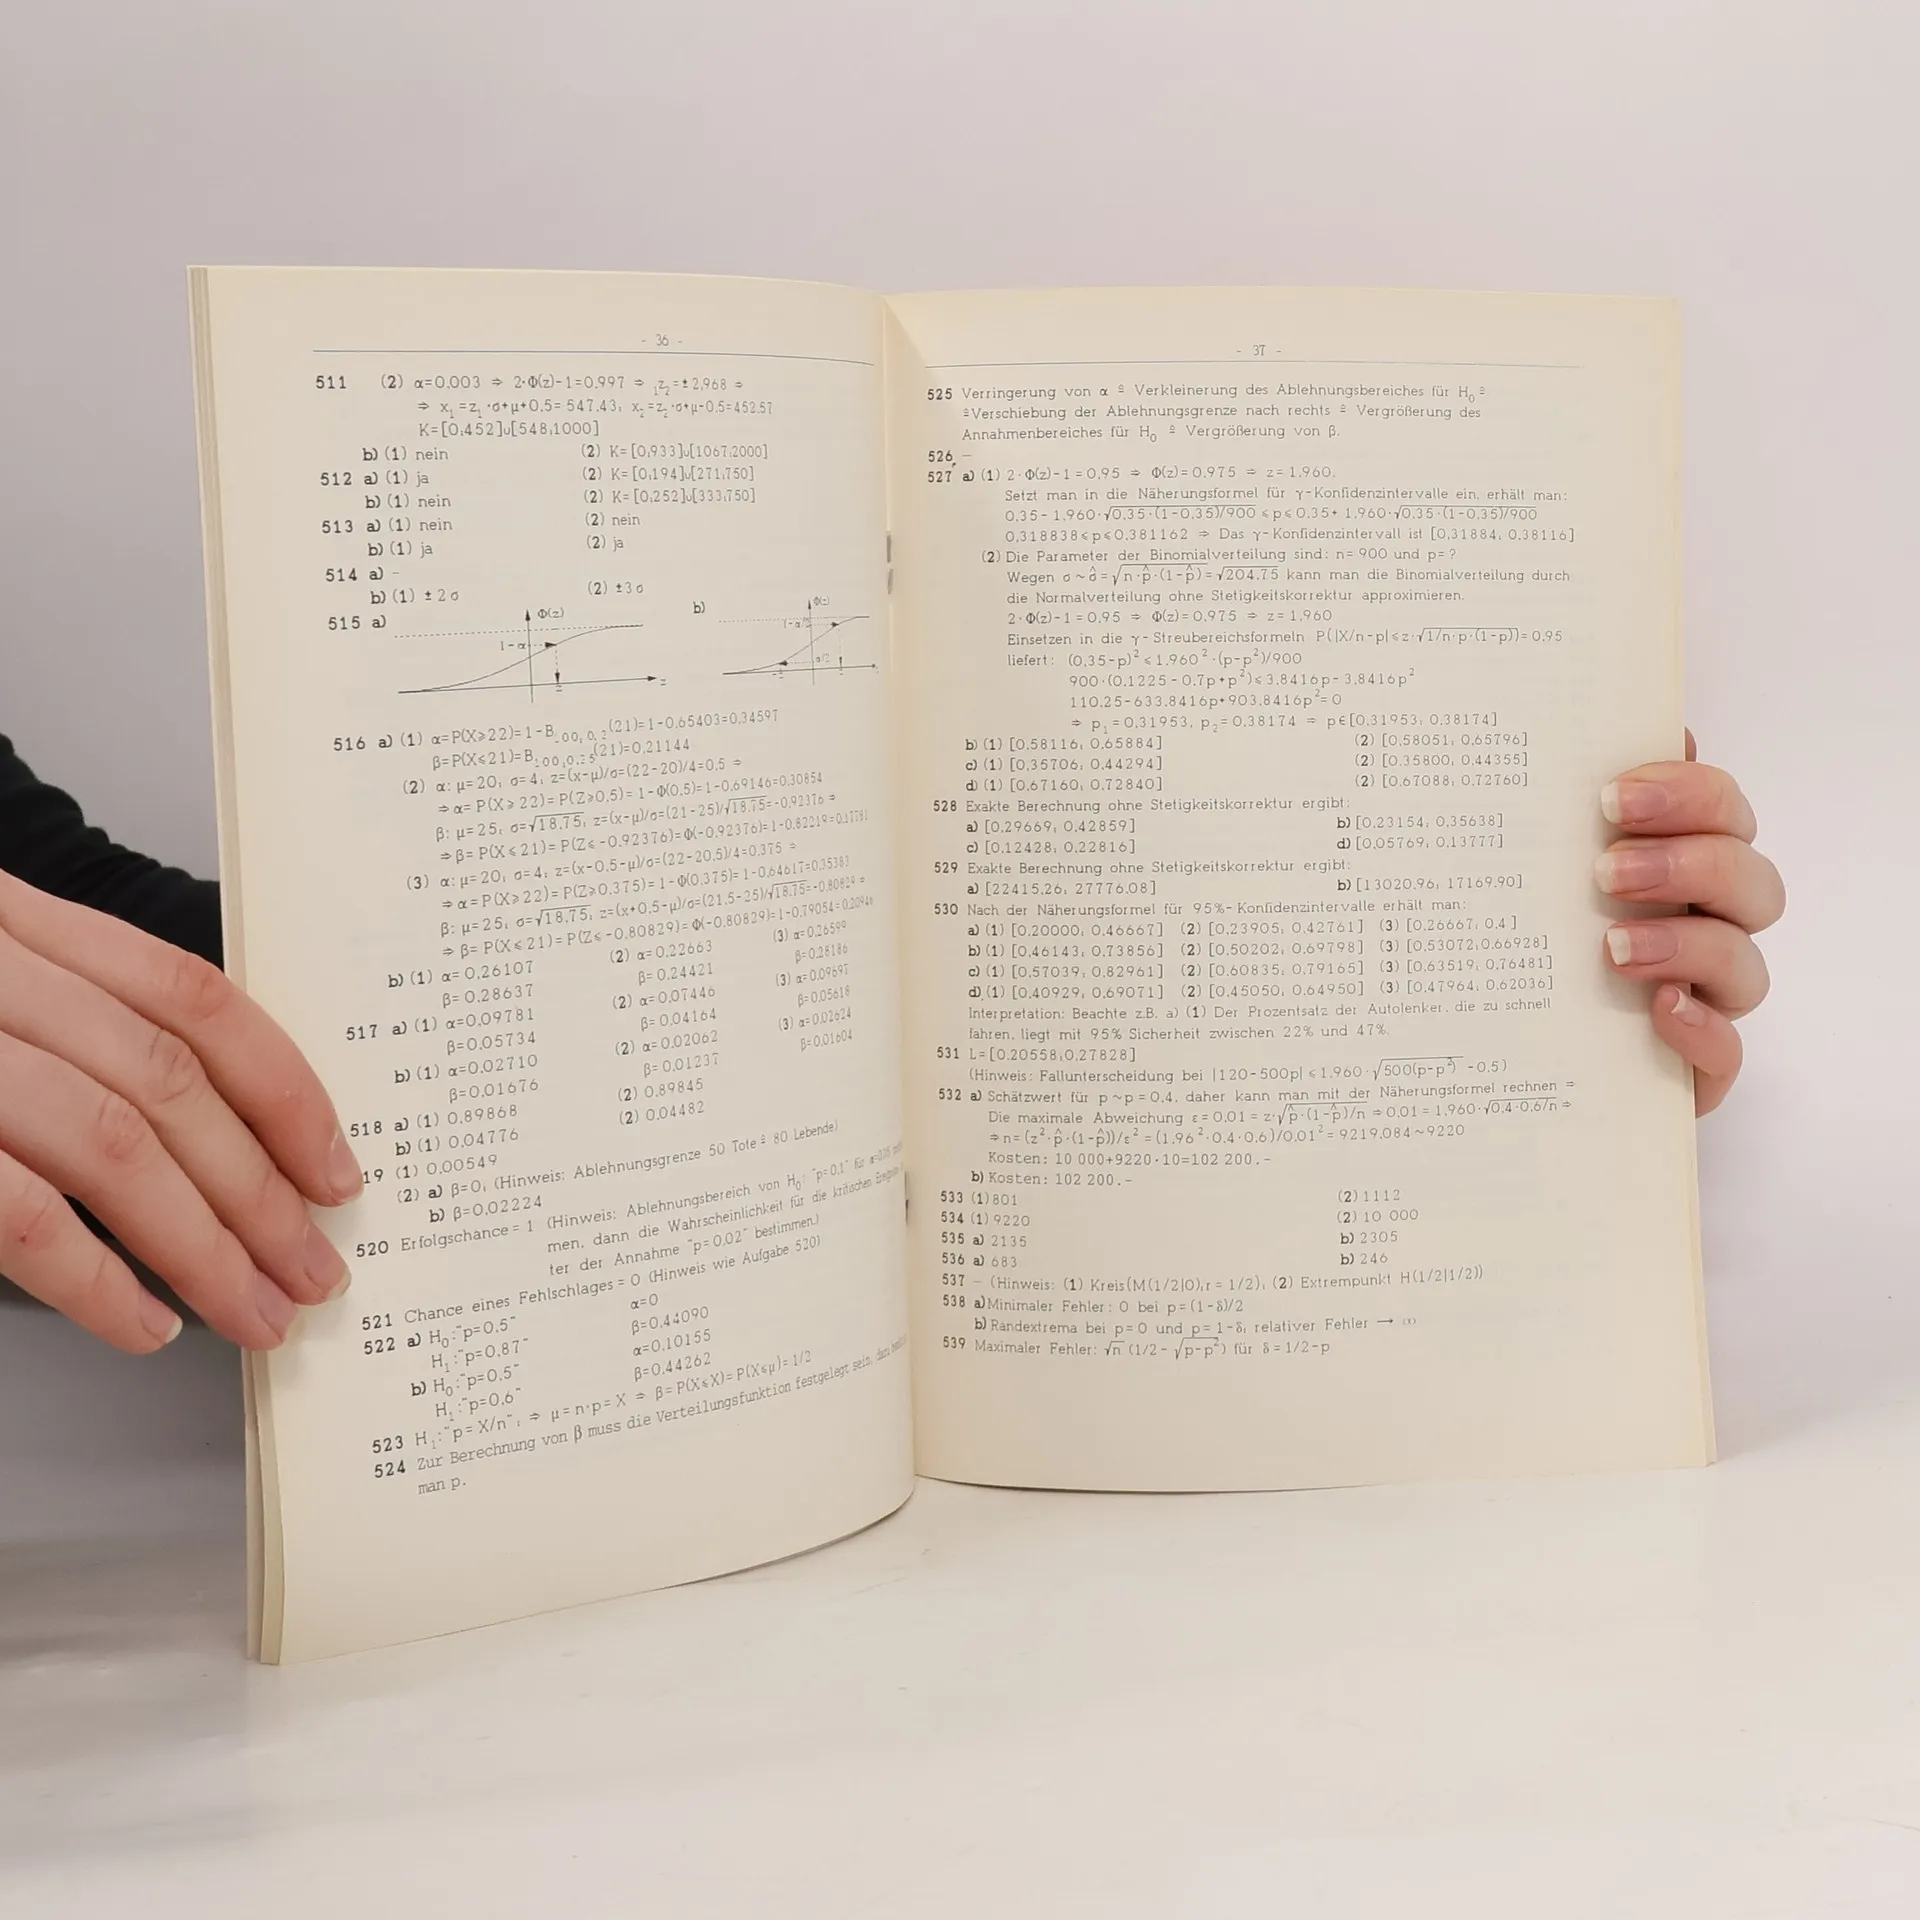 - 36 -
511 (2) α=0,003 ⇒ 2·Φ(z)-1=0,997 ⇒ ₁z₂=±2,968 ⇒
⇒ x₁=z₁·σ+μ+0,5=547,43; x₂=z₂·σ+μ-0,5=452,57
K=[0;452]∪[548;1000]
b) (1) nein (2) K=[0;933]∪[1067;2000]
512 a) (1) ja (2) K=[0;194]∪[271;750]
b) (1) nein (2) K=[0;252]∪[333;750]
513 a) (1) nein (2) nein
b) (1) ja (2) ja
514 a) -
b) (1) ±2σ (2) ±3σ
515 a) Φ(z) b) Φ(z)
1-α 1-α/2
α/2
z z -z z
516 a) (1) α=P(X⩾22)=1-B₁₀₀;₀,₂(21)=1-0,65403=0,34597
β=P(X⩽21)=B₁₀₀;₀,₂₅(21)=0,21144
(2) α: μ=20; σ=4; z=(x-μ)/σ=(22-20)/4=0,5 ⇒
⇒ α=P(X⩾22)=P(Z⩾0,5)=1-Φ(0,5)=1-0,69146=0,30854
β: μ=25; σ=√18,75; z=(x-μ)/σ=(21-25)/√18,75=-0,92376 ⇒
⇒ β=P(X⩽21)=P(Z⩽-0,92376)=Φ(-0,92376)=1-0,82219=0,17781
(3) α: μ=20; σ=4; z=(x-0,5-μ)/σ=(22-20,5)/4=0,375 ⇒
⇒ α=P(X⩾22)=P(Z⩾0,375)=1-Φ(0,375)=1-0,64617=0,35383
β: μ=25; σ=√18,75; z=(x+0,5-μ)/σ=(21,5-25)/√18,75=-0,80829 ⇒
⇒ β=P(X⩽21)=P(Z⩽-0,80829)=Φ(-0,80829)=1-0,79054=0,20946
b) (1) α=0,26107 (2) α=0,22663 (3) α=0,26599
β=0,28637 β=0,24421 β=0,28186
517 a) (1) α=0,09781 (2) α=0,07446 (3) α=0,09697
β=0,05734 β=0,04164 β=0,05618
b) (1) α=0,02710 (2) α=0,02062 (3) α=0,02624
β=0,01676 β=0,01237 β=0,01604
518 a) (1) 0,89868 (2) 0,89845
b) (1) 0,04776 (2) 0,04482
19 (1) 0,00549
(2) a) β=0; (Hinweis: Ablehnungsgrenze 50 Tote ≙ 80 Lebende)
b) β=0,02224
520 Erfolgschance = 1 (Hinweis: Ablehnungsbereich von H₀: "p=0,1" für α=0,05
men, dann die Wahrscheinlichkeit für die kritischen
ter der Annahme "p=0,02" bestimmen.)
521 Chance eines Fehlschlages = 0 (Hinweis wie Aufgabe 520)
522 a) H₀:"p=0,5" α=0
H₁:"p=0,87" β=0,44090
b) H₀:"p=0,5" α=0,10155
H₁:"p=0,6" β=0,44262
523 H₁:"p=X/n"; ⇒ μ=n·p=X ⇒ β=P(X⩽X)=P(X⩽μ)=1/2
524 Zur Berechnung von β muss die Verteilungsfunktion festgelegt sein, dazu
man p.
- 37 -
525 Verringerung von α ≙ Verkleinerung des Ablehnungsbereiches für H₀ ≙
≙Verschiebung der Ablehnungsgrenze nach rechts ≙ Vergrößerung des
Annahmenbereiches für H₀ ≙ Vergrößerung von β.
526 -
527 a) (1) 2·Φ(z)-1=0,95 ⇒ Φ(z)=0,975 ⇒ z=1,960.
Setzt man in die Näherungsformel für γ-Konfidenzintervalle ein, erhält man:
0,35-1,960·√0,35·(1-0,35)/900 ⩽p⩽0,35+1,960·√0,35·(1-0,35)/900
0,318838⩽p⩽0,381162 ⇒ Das γ-Konfidenzintervall ist [0,31884; 0,38116]
(2) Die Parameter der Binomialverteilung sind: n=900 und p=?
Wegen σ~σ̂=√n·p̂·(1-p̂)=√204,75 kann man die Binomialverteilung durch
die Normalverteilung ohne Stetigkeitskorrektur approximieren.
2·Φ(z)-1=0,95 ⇒ Φ(z)=0,975 ⇒ z=1,960
Einsetzen in die γ-Streubereichsformeln P(|X/n-p|⩽z·√1/n·p·(1-p))=0,95
liefert: (0,35-p)²⩽1,960²·(p-p²)/900
900·(0,1225-0,7p+p²)⩽3,8416p-3,8416p²
110,25-633,8416p+903,8416p²=0
⇒ p₁=0,31953, p₂=0,38174 ⇒ p∈[0,31953; 0,38174]
b) (1) [0,58116; 0,65884] (2) [0,58051; 0,65796]
c) (1) [0,35706; 0,44294] (2) [0,35800; 0,44355]
d) (1) [0,67160; 0,72840] (2) [0,67088; 0,72760]
528 Exakte Berechnung ohne Stetigkeitskorrektur ergibt:
a) [0,29669; 0,42859] b) [0,23154; 0,35638]
c) [0,12428; 0,22816] d) [0,05769; 0,13777]
529 Exakte Berechnung ohne Stetigkeitskorrektur ergibt:
a) [22415,26; 27776,08] b) [13020,96; 17169,90]
530 Nach der Näherungsformel für 95%-Konfidenzintervalle erhält man:
a) (1) [0,20000; 0,46667] (2) [0,23905; 0,42761] (3) [0,26667; 0,4]
b) (1) [0,46143; 0,73856] (2) [0,50202; 0,69798] (3) [0,53072;0,66928]
c) (1) [0,57039; 0,82961] (2) [0,60835; 0,79165] (3) [0,63519; 0,76481]
d) (1) [0,40929; 0,69071] (2) [0,45050; 0,64950] (3) [0,47964; 0,62036]
Interpretation: Beachte z.B. a) (1) Der Prozentsatz der Autolenker, die zu schnell
fahren, liegt mit 95% Sicherheit zwischen 22% und 47%.
531 L=[0,20558;0,27828]
(Hinweis: Fallunterscheidung bei |120-500p|⩽1,960·√500(p-p²) -0,5)
532 a) Schätzwert für p~p=0,4, daher kann man mit der Näherungsformel rechnen ⇒
Die maximale Abweichung ε=0,01=z·√p̂·(1-p̂)/n ⇒0,01=1,960·√0,4·0,6/n ⇒
⇒n=(z²·p̂·(1-p̂))/ε²=(1,96²·0,4·0,6)/0,01²=9219,084~9220
Kosten: 10 000+9220·10=102 200.-
b) Kosten: 102 200.-
533 (1) 801 (2) 1112
534 (1) 9220 (2) 10 000
535 a) 2135 b) 2305
536 a) 683 b) 246
537 - (Hinweis: (1) Kreis(M(1/2|0),r=1/2); (2) Extrempunkt H(1/2|1/2))
538 a) Minimaler Fehler: 0 bei p=(1-δ)/2
b) Randextrema bei p=0 und p=1-δ; relativer Fehler → ∞
539 Maximaler Fehler: √n (1/2-√p-p²) für δ=1/2-p